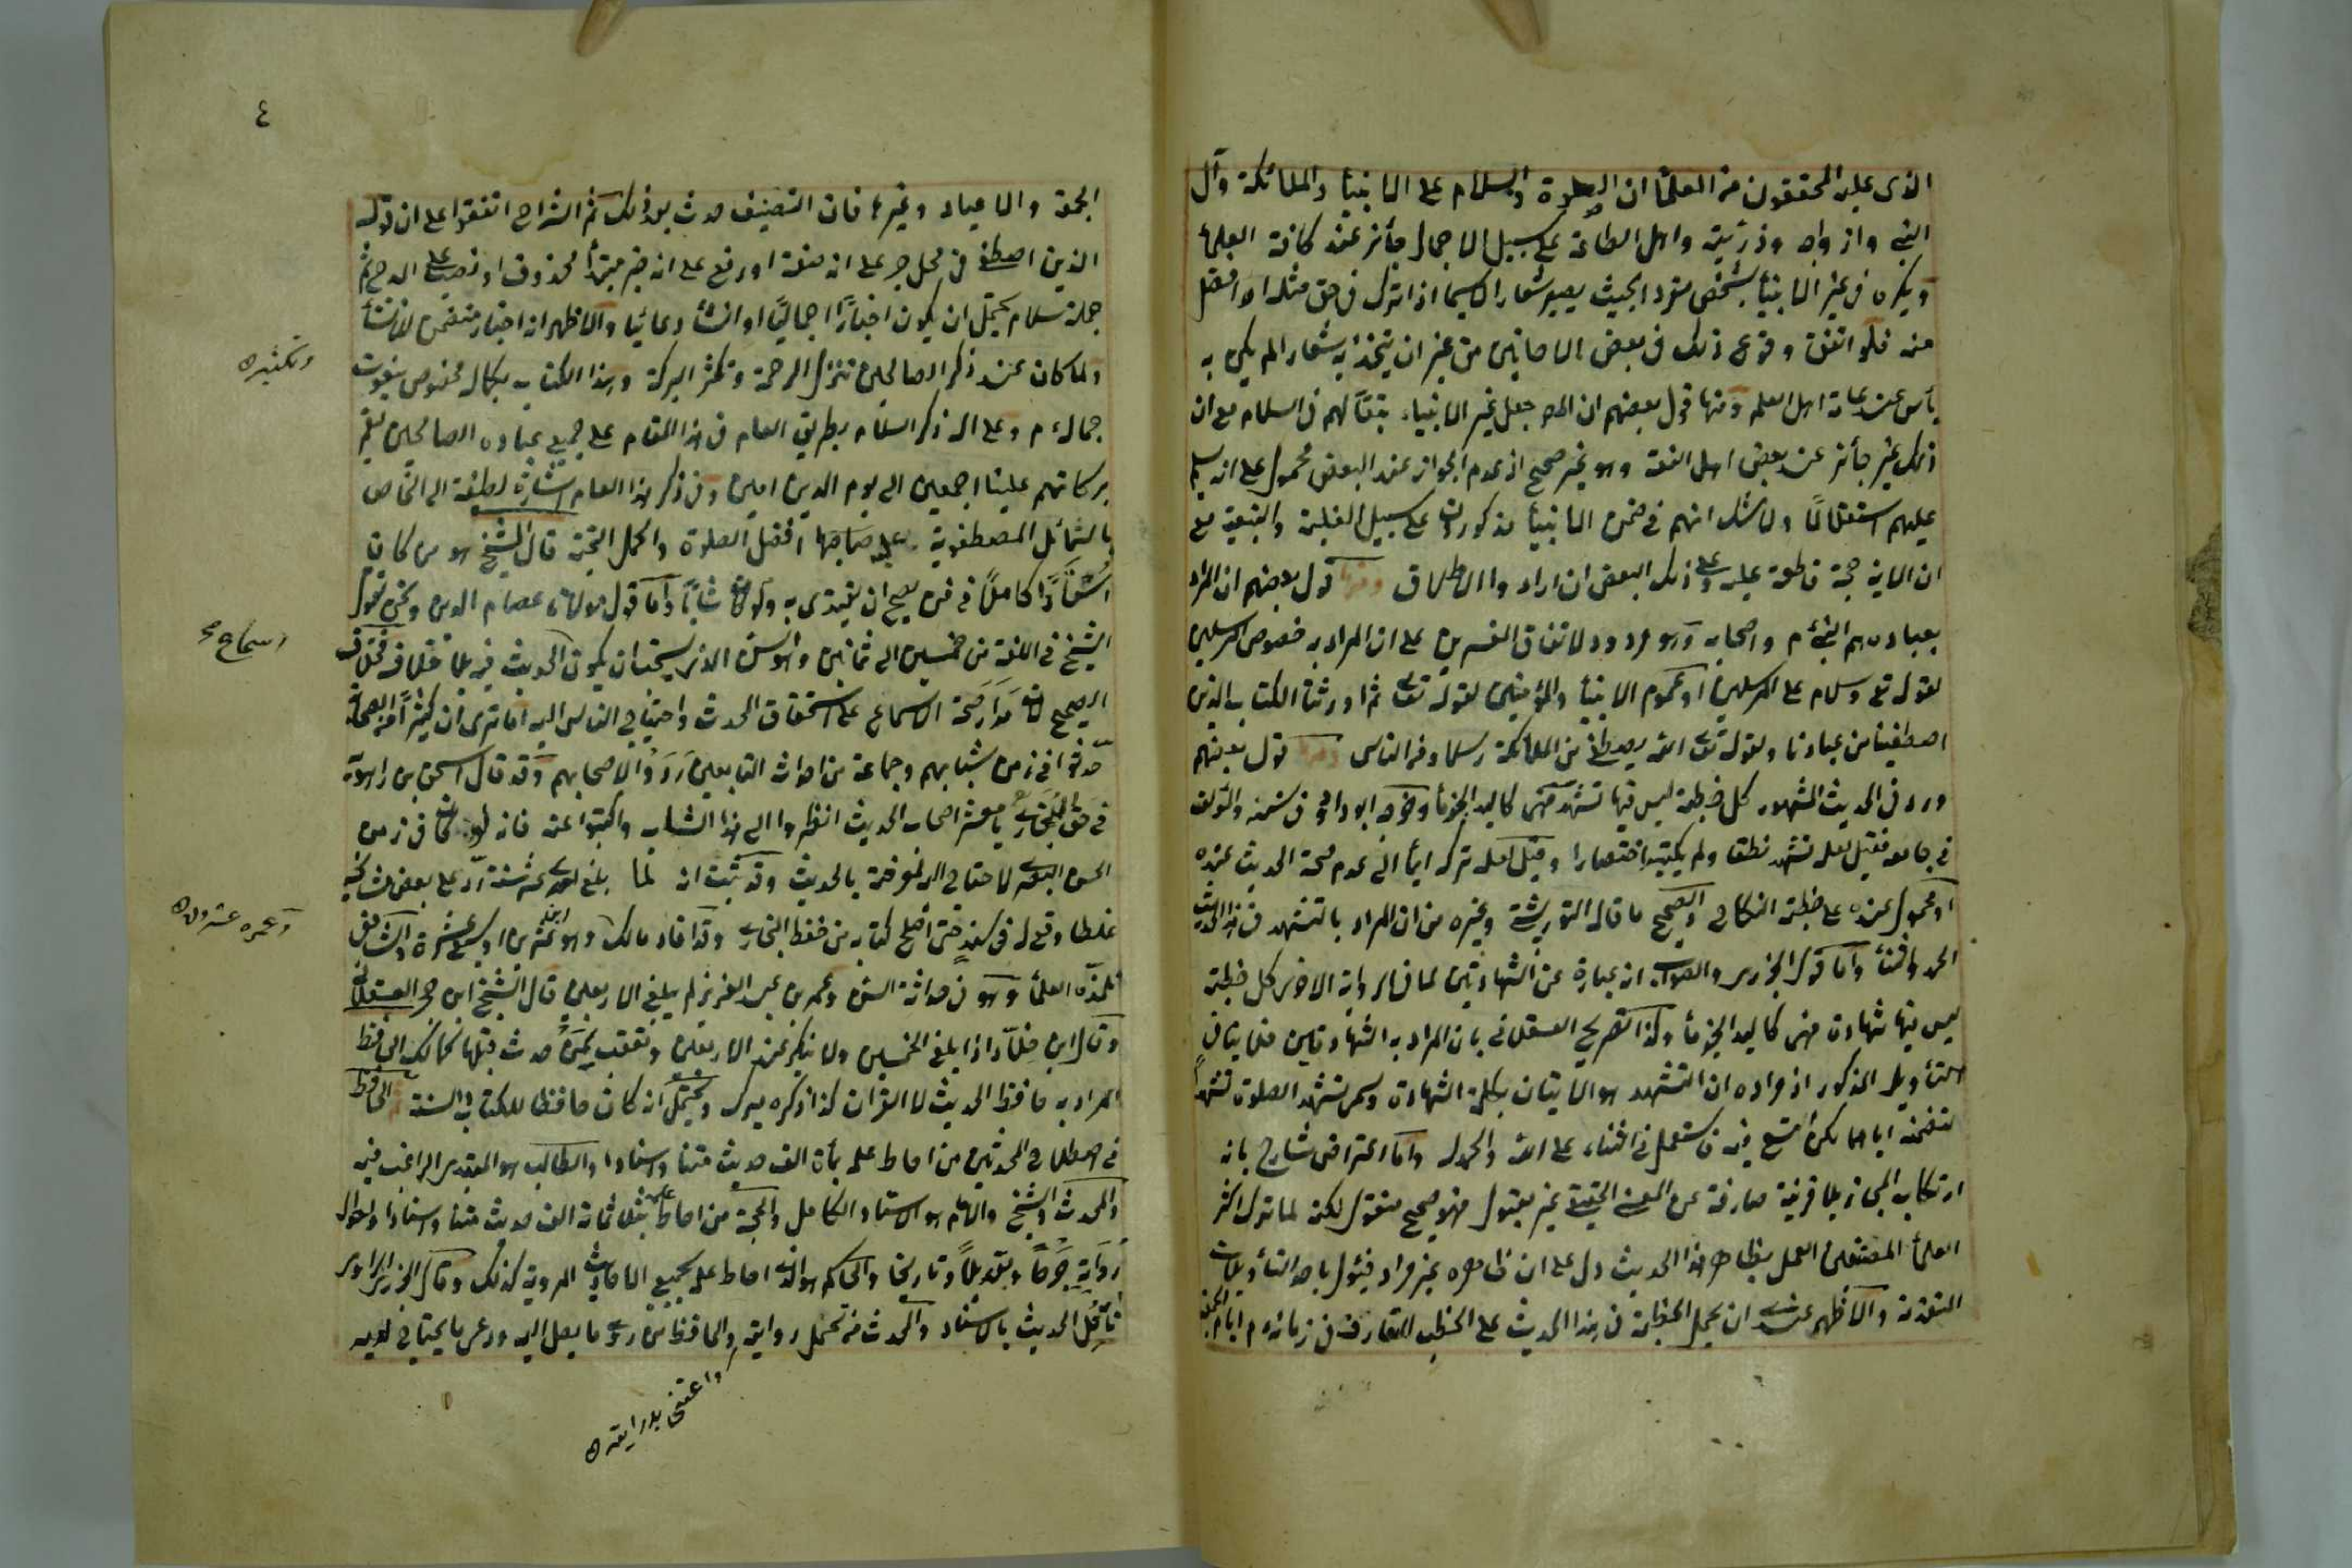 الذى عليه المحققون من العلمأ ان الصلوة والسلام على الانبيأ والملائكة وآل
النبى وازواجه وذريته واهل الطاعة على سبيل الاجمال جأئز عند كافة العلمأ
ويكره فى غير الانبيأ بشخص مفرد بحيث يصير شعارا لاسيما اذا ترك فى حق مثله او افضل
منه فلو اتفق وقوع ذلك فى بعض الاحايين من غير ان يتخذ به شعارا لم يكن به
بأس عند عامة اهل العلم ومنها قول بعضهم ان المص جعل غير الانبياء تبعًا لهم فى السلام مع ان
ذلك غير جأئز عند بعض اهل الفقه وهو غير صحيح اذ عدم الجواز عند البعض محمول على انه يسلم
عليهم استقلالًا ولا شك انهم فى ضمن الانبيأ مذكورون على سبيل الغلبة والتبعية مع
ان الاية حجة قاطعة عليه وعلى ذلك البعض ان ارادوا الاطلاق ومنها قول بعضهم ان المراد
بعباده هم النبى م واصحابه وهو مردود لاتفاق المفسرين على ان المراد به خصوص المرسلين
لقوله تع وسلام على المرسلين او عموم الانبيأ والمؤمنين لقوله تعالى ثم اورثنا الكتاب الذين
اصطفينا من عبادنا ولقوله تعالى الله يصطفى من الملائكة رسلا ومن الناس ومنها قول بعضهم
ورد فى الحديث المشهور كل خطبة ليس فيها تشهد فهى كاليد الجذمأ وخرجه ابو داود فى سننه والمؤلف
فى جامعه فقيل لعله تشهد نطقا ولم يكتبه اختصارا وقيل لعله تركه ايمأ الى عدم صحة الحديث عنده
او محمول عنده على خطبة النكاح والصحيح ما قاله التوربشتى وغيره من ان المراد بالتشهد فى هذا الحديث
الحمد والثنأ واما قول الجزرى والصواب انه عبارة عن الشهادتين لما فى الرواية الاخرى كل خطبة
ليس فيها شهادة فهى كاليد الجذمأ وكذا تصريح العسقلانى بان المراد به الشهادتين فلا ينافى
التأويل المذكور اذ مراده ان التشهد هو الاتيان بكلمة الشهادة وسمى تشهد الصلوة تشهدًا
لتضمنه اياهما لكن اتسع فيه فاستعمل فى الثناء على الله والحمد له واما اعتراض شارح بانه
ارتكاب المجاز بلا قرينة صارفة عن المعنى الحقيقى غير مقبول فهو صحيح منقول لكنه لما ترك اكثر
العلمأ المصنفين العمل بظاهر هذا الحديث دل على ان ظاهره غير مراد فيؤول باحد التأويلات
المتقدمة والاظهر عندى ان يحمل الخطبة فى هذا الحديث على الخطب المتعارفة فى زمانه م ايام الجمعة
٤
الجمع والاعياد وغيرها فان التصنيف حدث بعد ذلك ثم الشراح اتفقوا على ان قوله
الذين اصطفى فى محل جر على انه صفة او رفع على انه خبر مبتدأ محذوف او نصب على المدح ثم
جملة سلام يحتمل ان يكون اخبارًا اجماليًا او انشأ دعائيا والاظهر انه اخبار متضمن للانشأ
ولما كان عند ذكر الصالحين تنزل الرحمة وتكثر البركة وهذا الكتاب بكماله مخصوص بنعوت
وتكثيره
جماله م وعلى اله ذكر السلام بطريق العام فى هذا المقام على جميع عباده الصالحين ليعم
بركاتهم علينا اجمعين الى يوم الدين امين وفى ذكر هذا العام اشارة لطيفة الى الخاص
بالشمائل المصطفوية على صاحبها افضل الصلوة واكمل التحية قال الشيخ هو من كان
استاذًا كاملًا فى فن يصح ان يقتدى به ولو كان شابًا واما قول مولانا عصام الدين ونحن نقول
الشيخ فى اللغة من خمسين الى ثمانين وهو السن الذى يستحب ان يكون الحديث فيه بلا خلاف فخلاف
اسماع صح
الصحيح لان مدار صحة الاسماع على استحقاق المحدث واحتياج الناس اليه اما ترى ان كثيرًا من الصحابة
حدّثوا فى زمن شبابهم وجماعة من احداث التابعين رووا لاصحابهم وقد قال اسحق بن راهويه
فى حق البخارى يا معشر اصحاب الحديث انظروا الى هذا الشاب واكتبوا عنه فانه لو كان فى زمن
الحسن البصرى لاحتاج اليه لمعرفته بالحديث وقد ثبت انه لما بلغ احدى عشر سنة ردّ على بعض مشائخه
غلطا وقع له فى سند حتى اصلح كتابه من حفظ البخارى وقد افاد مالك وهو ابن سبع عشرة والشافعى
وعمره عشرون
تلمذه العلمأ وهو فى حداثة السن وعمر بن عبد العزيز لم يبلغ الاربعين قال الشيخ ابن حجر العسقلانى
وقال ابن خلّاد اذا بلغ الخمسين ولا ينكر عند الاربعين وتعقب بمن حدث قبلها كمالك الحافظ
المراد به حافظ الحديث لا القران كذا ذكره ميرك ويحتمل انه كان حافظا للكتاب والسنة ثم الحافظ
فى اصطلاح المحدثين من احاط علمه بمأة الف حديث متنا واسنادا والطالب هو المبتدى الراغب فيه
والمحدث والشيخ والامام هو الاستاد الكامل والحجة من احاط علمه بثلاثمائة الف حديث متنا واسنادا واحوال
رواته جرحًا وتعديلًا وتاريخا والحاكم هو الذى احاط علمه بجميع الاحاديث المروية كذلك وقال الجزرى الراوى
ناقل الحديث بالاسناد والمحدث من تحمل روايته والحافظ من روى ما يصل اليه ووعى ما يحتاج لديه
واعتنى بدرايته